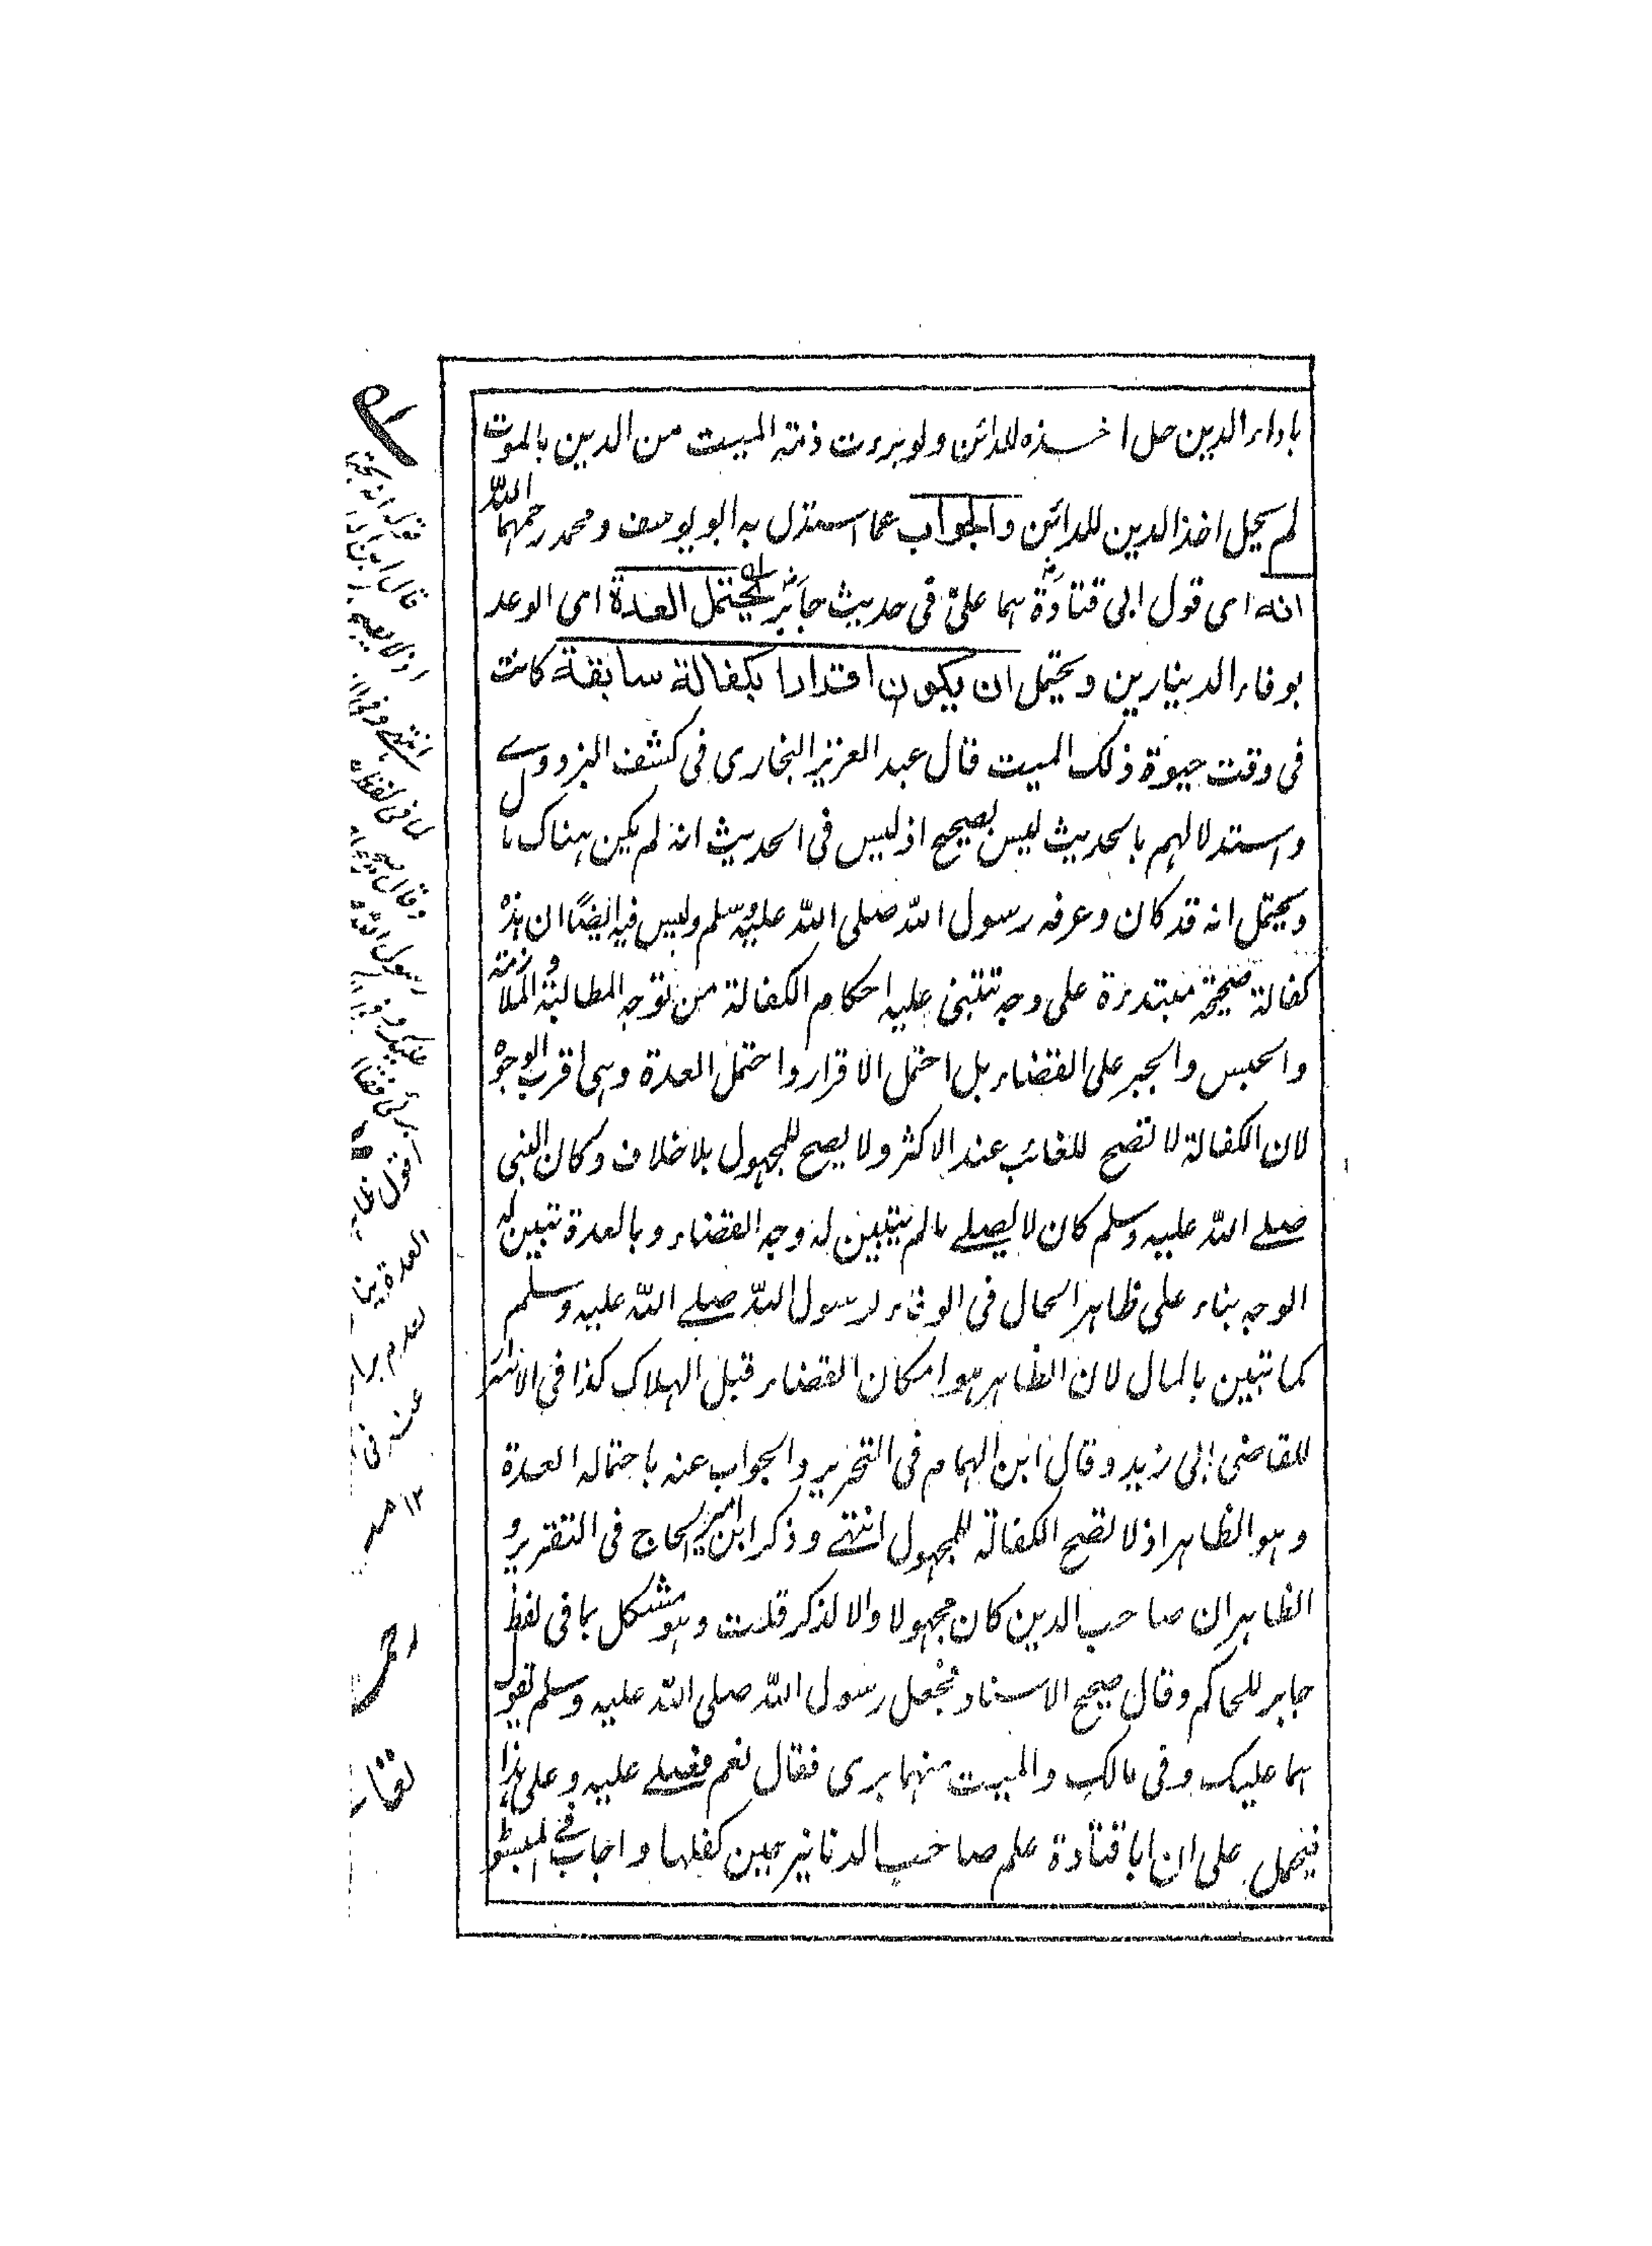 باداء الدين حل اخذه للدائن ولو برءت ذمة الميت من الدين بالموت
لم يحل اخذ الدين للدائن والجواب عما استدل به ابو يوسف ومحمد رحمهما الله
انه اى قول ابى قتادة رض هما على فى حديث جابر رض يحتمل العدة اى الوعد
بوفاء الدينارين ويحتمل ان يكون اقرارا بكفالة سابقة كانت
فى وقت حيوة ذلك الميت قال عبد العزيز البخارى فى كشف البزدوے
واستدلالهم بالحديث ليس بصحيح اذ ليس فى الحديث انه لم يكن هناك مال
ويحتمل انه قد كان وعرفه رسول الله صلى الله عليه وسلم وليس فيه ايضًا ان هذه
كفالة صحيحة مبتدءة على وجه تتبنى عليه احكام الكفالة من توجه المطالبة والملازمة
والحبس والجبر على القضاء بل احتمل الاقرار واحتمل العدة وهى اقرب الوجوه
لان الكفالة لا تصح للغائب عند الاكثر ولا يصح للمجهول بلا خلاف وكان النبى
صلے الله عليه وسلم كان لا يصلے ما لم يتبين له وجه القضاء وبالعدة تبين له
الوجه بناء على ظاهر الحال فى الوفاء لرسول الله صلے الله عليه وسلم
كما تبين بالمال لان الظاهر هو امكان القضاء قبل الهلاك كذا فى الاسرار
للقاضى ابى زيد وقال ابن الهمام فى التحرير والجواب عنه باحتماله العدة
وهو الظاهر اذ لا تصح الكفالة للمجهول انتهے وذكر ابن امير الحاج فى التقرير و
الظاهر ان صاحب الدين كان مجهولا والا لذكر قلت وهو مشكل بما فى لفظ
جابر للحاكم وقال صحيح الاسناد فجعل رسول الله صلى الله عليه وسلم يقول
هما عليك وفى مالك والميت منهما برى فقال نعم فصلے عليه وعلى هذا
فيحمل على ان ابا قتادة علم صاحب الدنانير حين كفلها واجاب فے المبسوط
اقول
العدة
عنه فى
١٢ منه